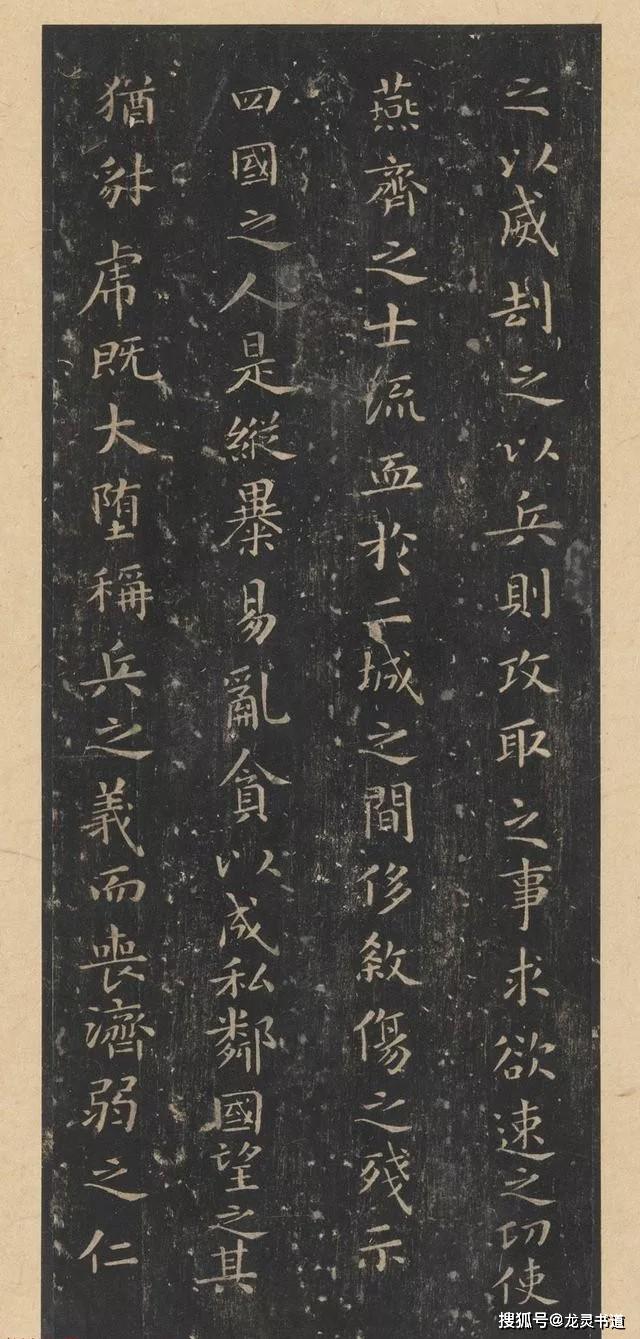 之以威刦之以兵則攻取之事求欲速之功使
燕齊之士流血於二城之間侈殺傷之殘示
四國之人是縱暴易亂貪以成私鄰國望之其
猶豺虎既大堕稱兵之義而喪濟弱之仁
搜狐号@龙灵书道